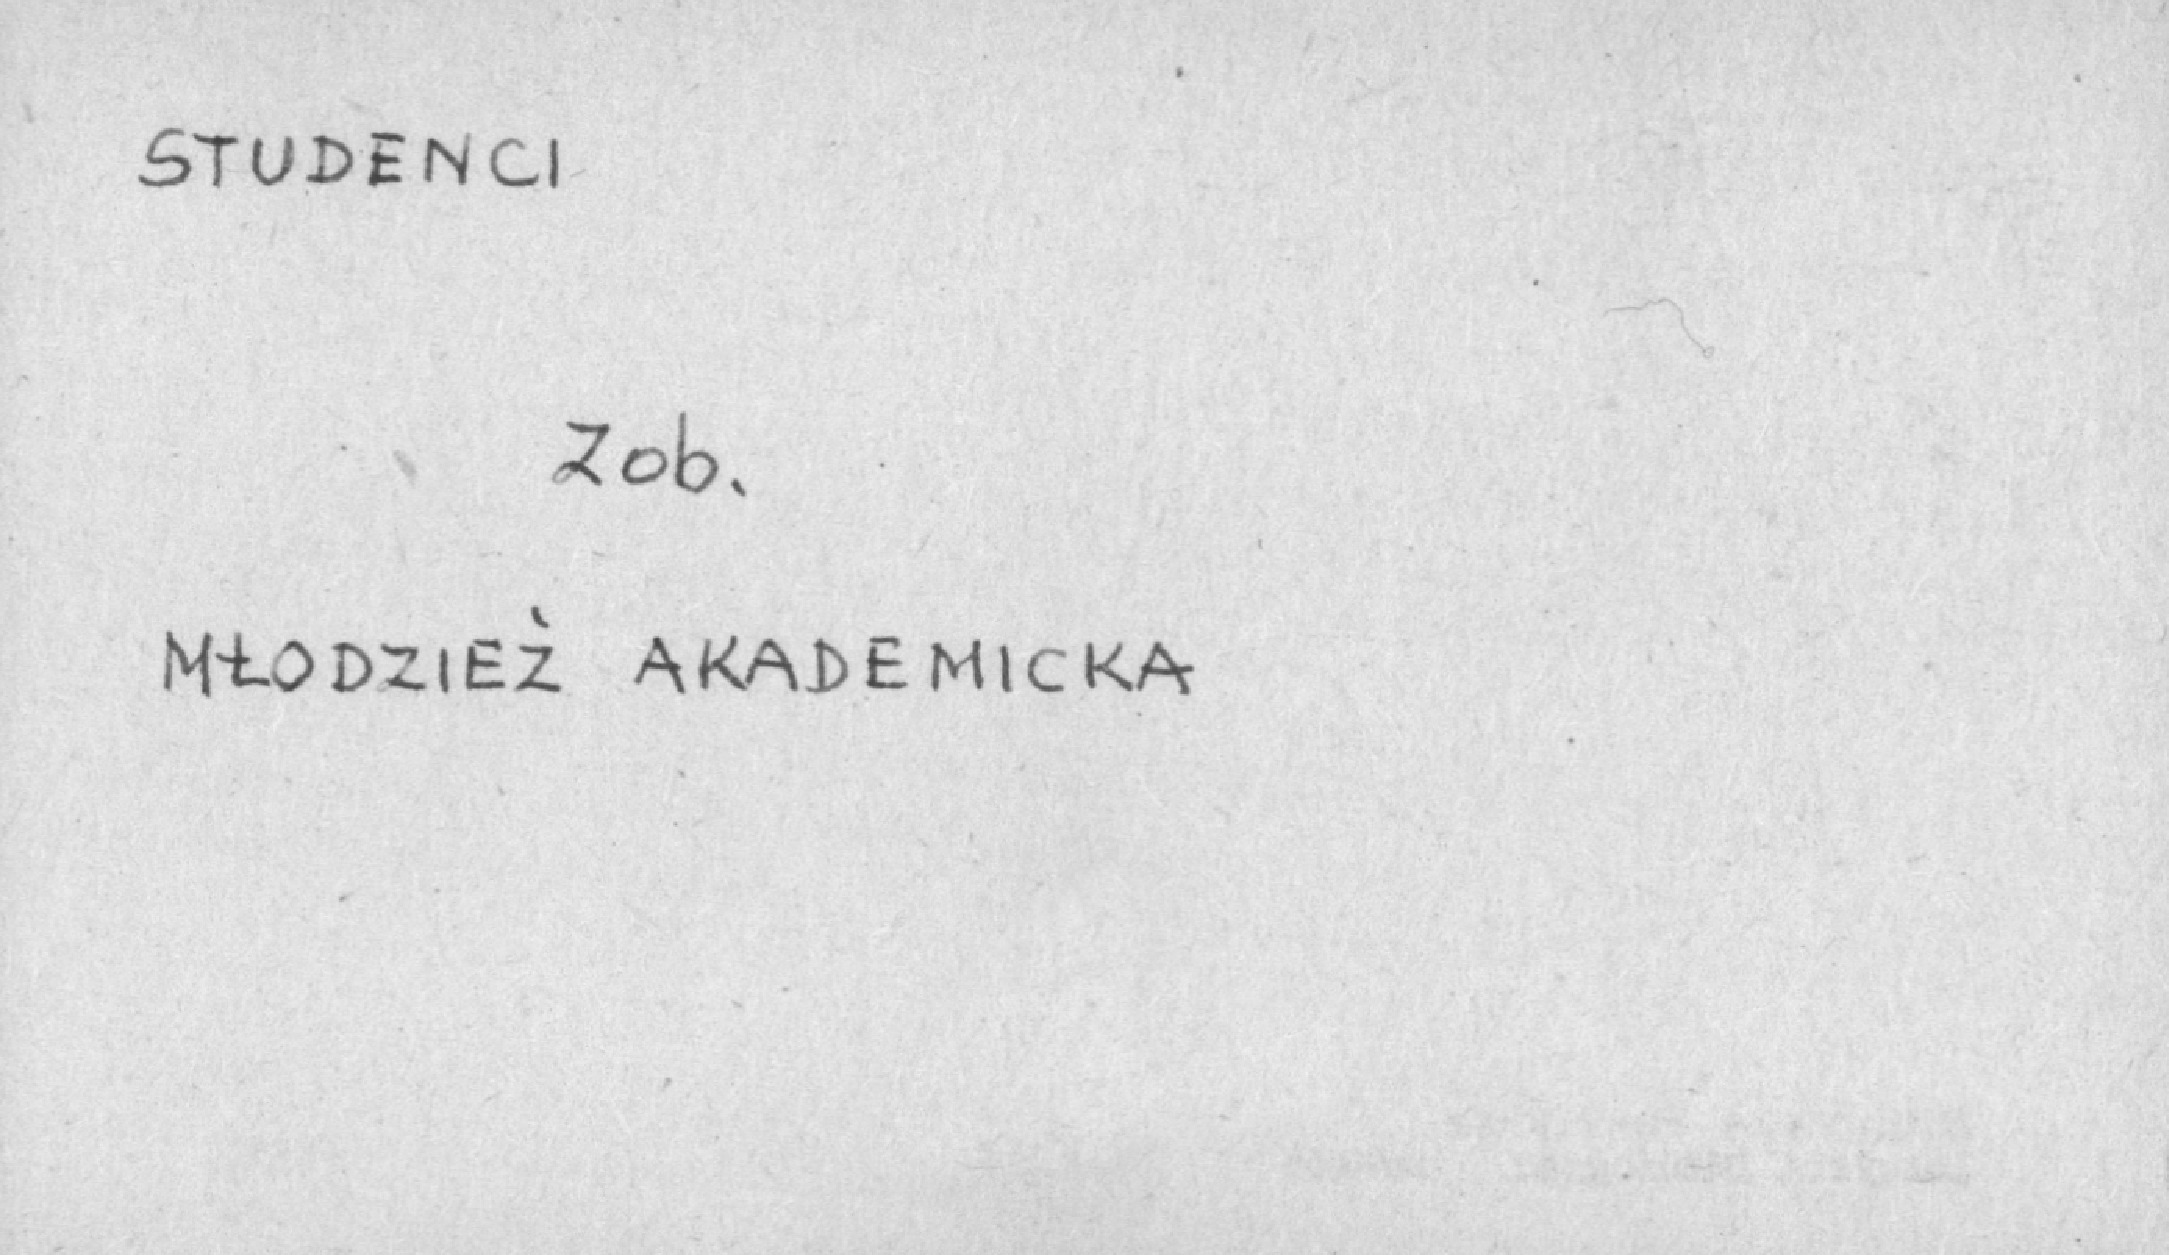 STUDENCI
Zob.
MŁODZIEŻ AKADEMICKA